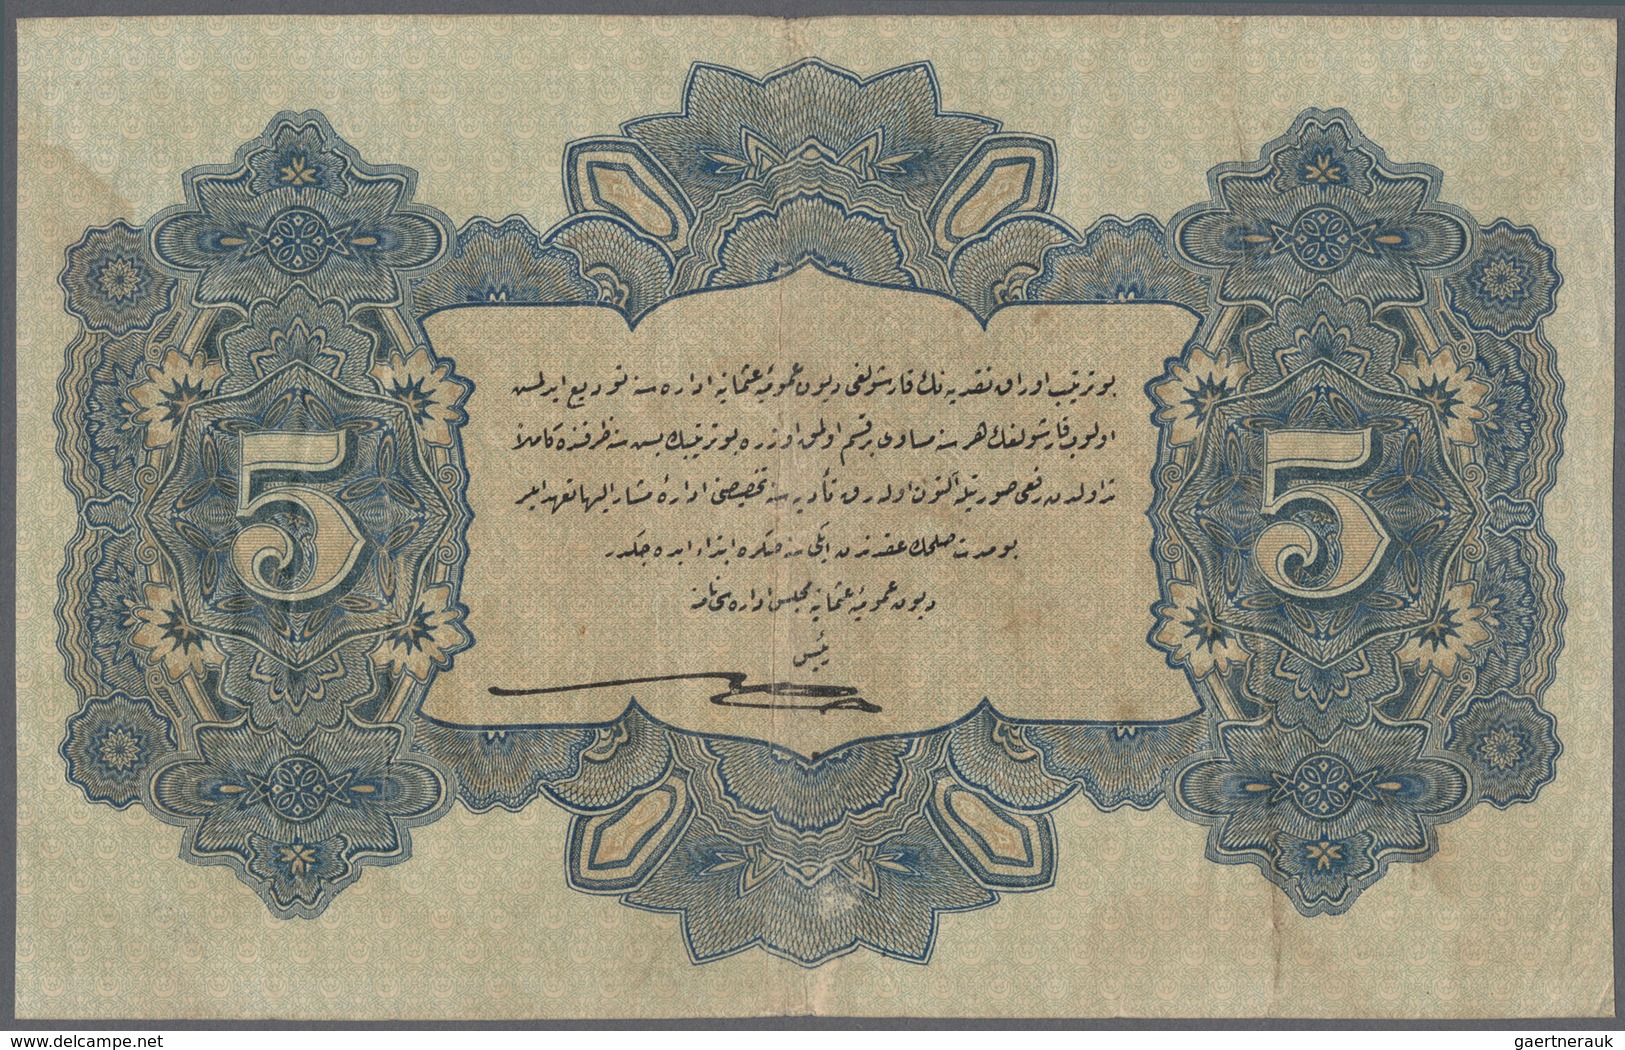 5 5
بو ترتیب اوراق نقدیه نك قارشولغی دیون عمومیهٔ عثمانیه اداره سنه تودیع ایدلمش
اولوب قارشولغك هر سنه مساوی بر قسم اولمق اوزره بو ترتیبك بش سنه ظرفنده کاملاً
تداولدن رفعی صورتیله آلتون اوله رق تأدیه سنه تخصیصنی ادارهٔ مشار الیها تعهد ایلر
بو مدت صلحك عقدندن ایکی سنه صکره ابتدا ایده جکدر
دیون عمومیهٔ عثمانیه مجلس اداره سی نامنه
رئیس
delcampe.net
gaertnerauk